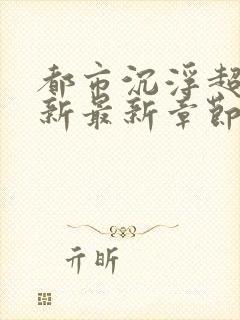 都市沉浮超
新最新章節
亓昕